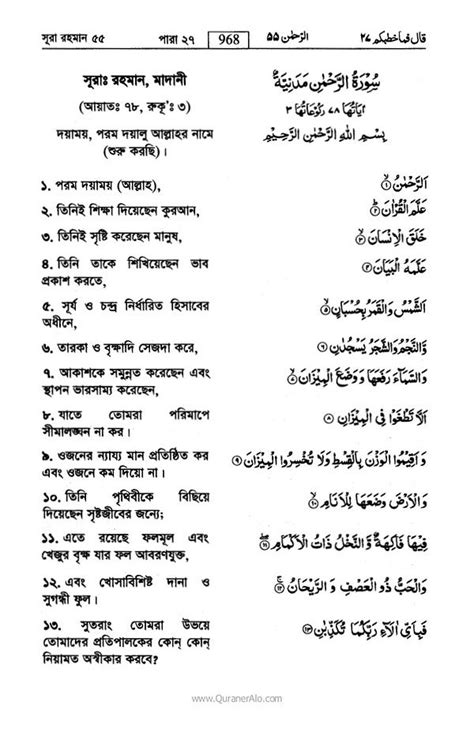 সূরা রহমান ৫৫ পারা ২৭ 968 الرّحمٰن ۵۵ قال فما خطبكم ۲۷
সূরাঃ রহমান, মাদানী
(আয়াতঃ ৭৮, রুকূ'ঃ ৩)
দয়াময়, পরম দয়ালু আল্লাহর নামে
(শুরু করছি)।
سُوْرَةُ الرَّحْمٰنِ مَدَنِيَّةٌ
اٰيَاتُهَا ٧٨ رُكُوْعَاتُهَا ٣
بِسْمِ اللهِ الرَّحْمٰنِ الرَّحِيْمِ
১. পরম দয়াময় (আল্লাহ),
اَلرَّحْمٰنُ ۙ﴿١﴾
২. তিনিই শিক্ষা দিয়েছেন কুরআন,
عَلَّمَ الْقُرْاٰنَ ؕ﴿٢﴾
৩. তিনিই সৃষ্টি করেছেন মানুষ,
خَلَقَ الْاِنْسَانَ ۙ﴿٣﴾
৪. তিনি তাকে শিখিয়েছেন ভাব
প্রকাশ করতে,
عَلَّمَهُ الْبَيَانَ ﴿٤﴾
৫. সূর্য ও চন্দ্র নির্ধারিত হিসাবের
অধীনে,
اَلشَّمْسُ وَالْقَمَرُ بِحُسْبَانٍ ۙ﴿٥﴾
৬. তারকা ও বৃক্ষাদি সেজদা করে,
وَّالنَّجْمُ وَالشَّجَرُ يَسْجُدٰنِ ﴿٦﴾
৭. আকাশকে সমুন্নত করেছেন এবং
স্থাপন ভারসাম্য করেছেন,
وَالسَّمَآءَ رَفَعَهَا وَوَضَعَ الْمِيْزَانَ ۙ﴿٧﴾
৮. যাতে তোমরা পরিমাপে
সীমালঙ্ঘন না কর।
اَلَّا تَطْغَوْا فِى الْمِيْزَانِ ﴿٨﴾
৯. ওজনের ন্যায্য মান প্রতিষ্ঠিত কর
এবং ওজনে কম দিয়ো না।
وَاَقِيْمُوا الْوَزْنَ بِالْقِسْطِ وَلَا تُخْسِرُوا الْمِيْزَانَ ﴿٩﴾
১০. তিনি পৃথিবীকে বিছিয়ে
দিয়েছেন সৃষ্টজীবের জন্যে;
وَالْاَرْضَ وَضَعَهَا لِلْاَنَامِ ۙ﴿١٠﴾
১১. এতে রয়েছে ফলমূল এবং
খেজুর বৃক্ষ যার ফল আবরণযুক্ত,
فِيْهَا فَاكِهَةٌ وَّالنَّخْلُ ذَاتُ الْاَكْمَامِ ۖ﴿١١﴾
১২. এবং খোসাবিশিষ্ট দানা ও
সুগন্ধী ফুল।
وَالْحَبُّ ذُو الْعَصْفِ وَالرَّيْحَانُ ۚ﴿١٢﴾
১৩. সুতরাং তোমরা উভয়ে
তোমাদের প্রতিপালকের কোন্ কোন্
নিয়ামত অস্বীকার করবে?
فَبِاَىِّ اٰلَآءِ رَبِّكُمَا تُكَذِّبٰنِ ﴿١٣﴾
www.QuranerAlo.com